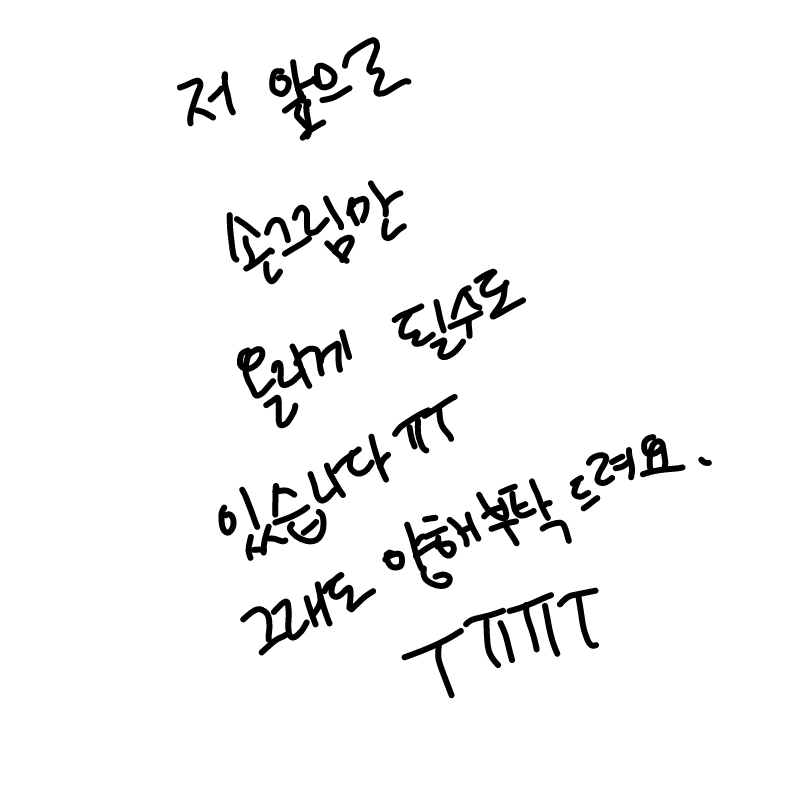 저 앞으로
손그림만
올리게 될수도
있습니다 ㅠㅜ
그래도 양해부탁드려요.
ㅜㅠㅠㅜ